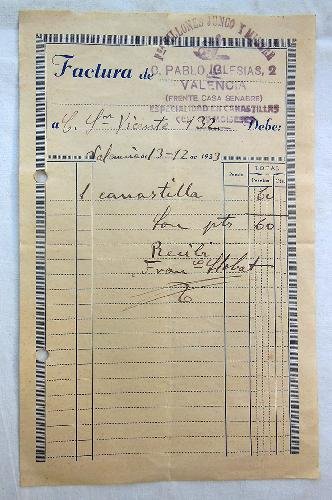 Fca SILLONES JUNCO Y MIMBRE
Factura de
C. PABLO IGLESIAS, 2
VALENCIA
(FRENTE CASA SENABRE)
ESPECIALIDAD EN CANASTILLAS
a C. Sn Vicente 132 Debe:
Valencia 13-12 DE 1933
TOTAL
Precio Pesetas Cts.
1 canastilla 60
Son pts 60
Recibi
Franco